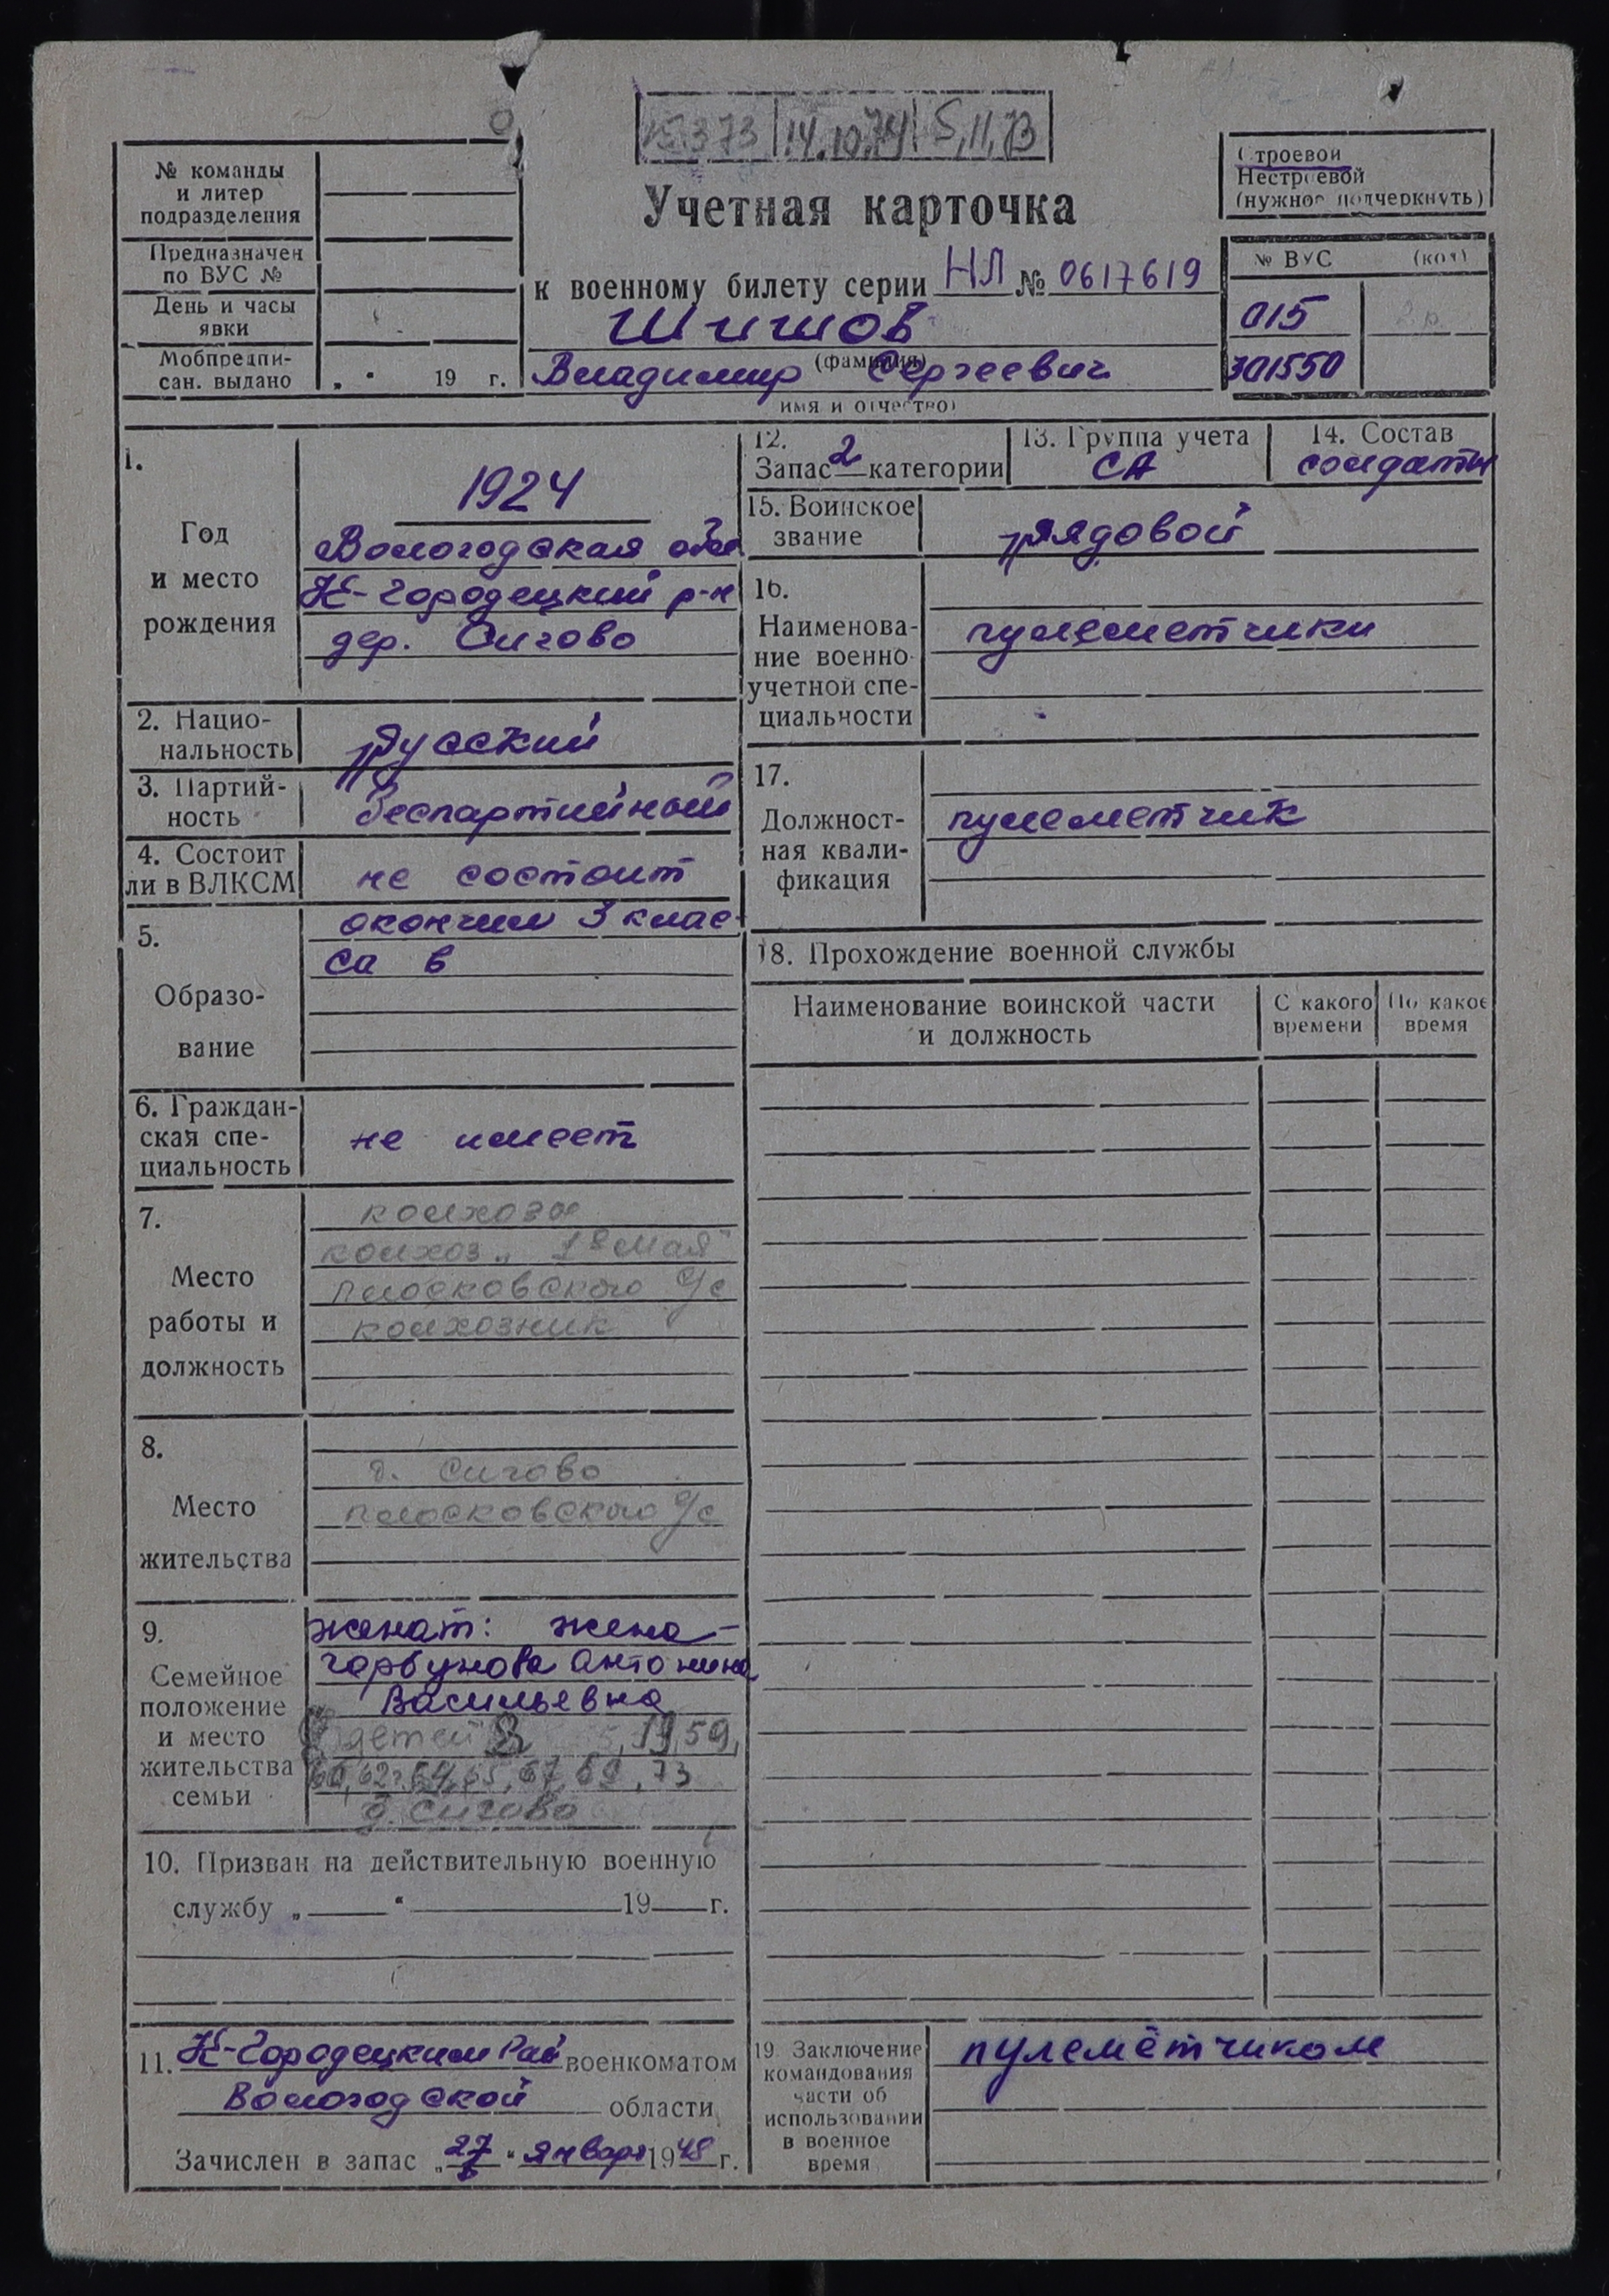 15.3.73 14.10.74 5,11,73
№ команды
и литер
подразделения
Предназначен
по ВУС №
День и часы
явки
Мобпредпи-
сан. выдано „ “ 19 г.
Учетная карточка
к военному билету серии НЛ № 0617619
Шишов
(фамилия)
Владимир Сергеевич
имя и отчество)
Строевой
Нестроевой
(нужное подчеркнуть)
№ ВУС (код)
015
301550
1.
Год
и место
рождения
1924
Вологодская обл
К-Городецкий р-н
дер. Сигово
2. Нацио-
нальность
Русский
3. Партий-
ность
беспартийный
4. Состоит
ли в ВЛКСМ
не состоит
5.
Образо-
вание
окончил 3 клас-
са в
6. Граждан-
ская спе-
циальность
не имеет
7.
Место
работы и
должность
колхозы
колхоз „1е Мая"
Плосковского с/с
колхозник
8.
Место
жительства
д. Сигово
Плосковского с/с
9.
Семейное
положение
и место
жительства
семьи
женат: жена -
Горбунова Антонина
Васильевна
детей 59,
60, 62, 64, 65, 67, 69, 73
д. Сигово
10. Призван на действительную военную
службу „ “ 19 г.
11. К-Городецким Рай военкоматом
Вологодской области
Зачислен в запас „27“ января 1948 г.
12.
Запас 2 категории
13. Группа учета
СА
14. Состав
солдаты
15. Воинское
звание
рядовой
16.
Наименова-
ние военно-
учетной спе-
циальности
пулеметчики
17.
Должност-
ная квали-
фикация
пулеметчик
18. Прохождение военной службы
Наименование воинской части
и должность
С какого
времени
По какое
время
19 Заключение
командования
части об
использовании
в военное
время
пулемётчиком